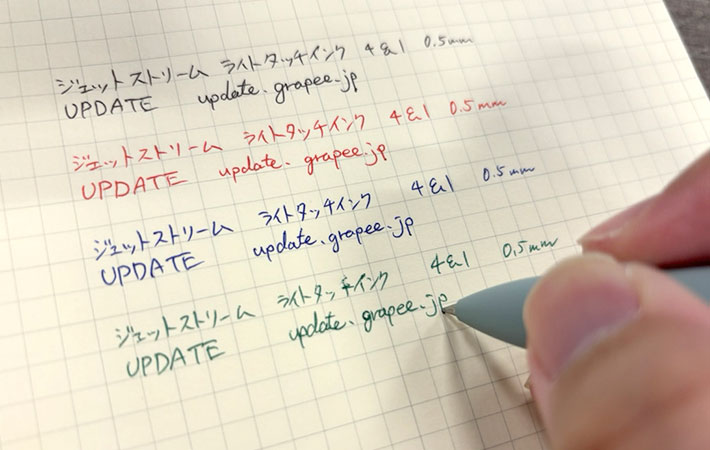 ジェットストリーム ライトタッチインク 4&1 0.5mm
UPDATE update.grapee.jp
ジェットストリーム ライトタッチインク 4&1 0.5mm
UPDATE update.grapee.jp
ジェットストリーム ライトタッチインク 4&1 0.5mm
UPDATE update.grapee.jp
ジェットストリーム ライトタッチインク 4&1 0.5mm
UPDATE update.grapee.jp